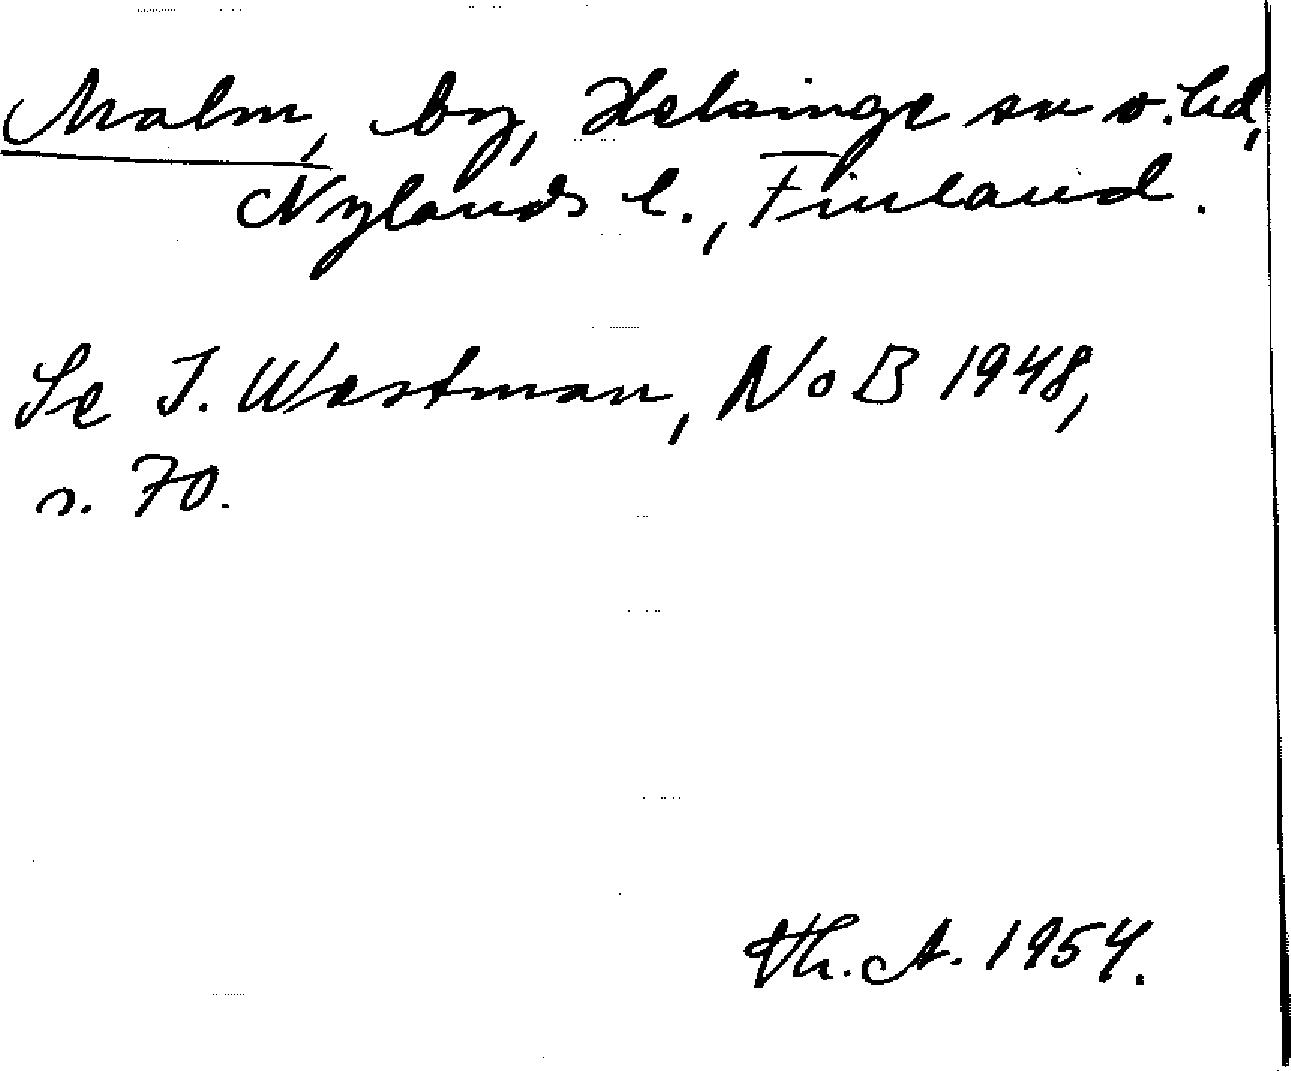 Malm, by, Helsinge sn o. hd,
Nylands l., Finland.
Se I. Westman, NoB 1948,
s. 70.
Th. A. 1954.